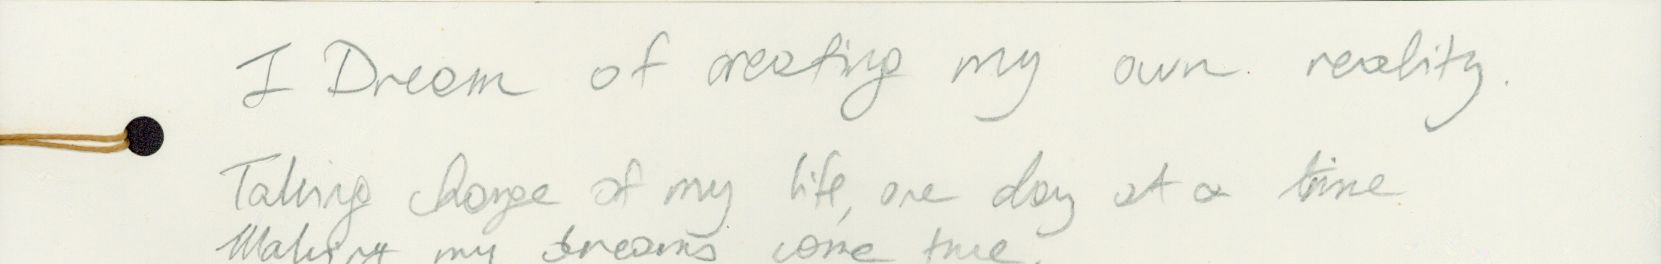 I Dream of creating my own reality.
Taking charge of my life, one day at a time
Making my dreams come true.